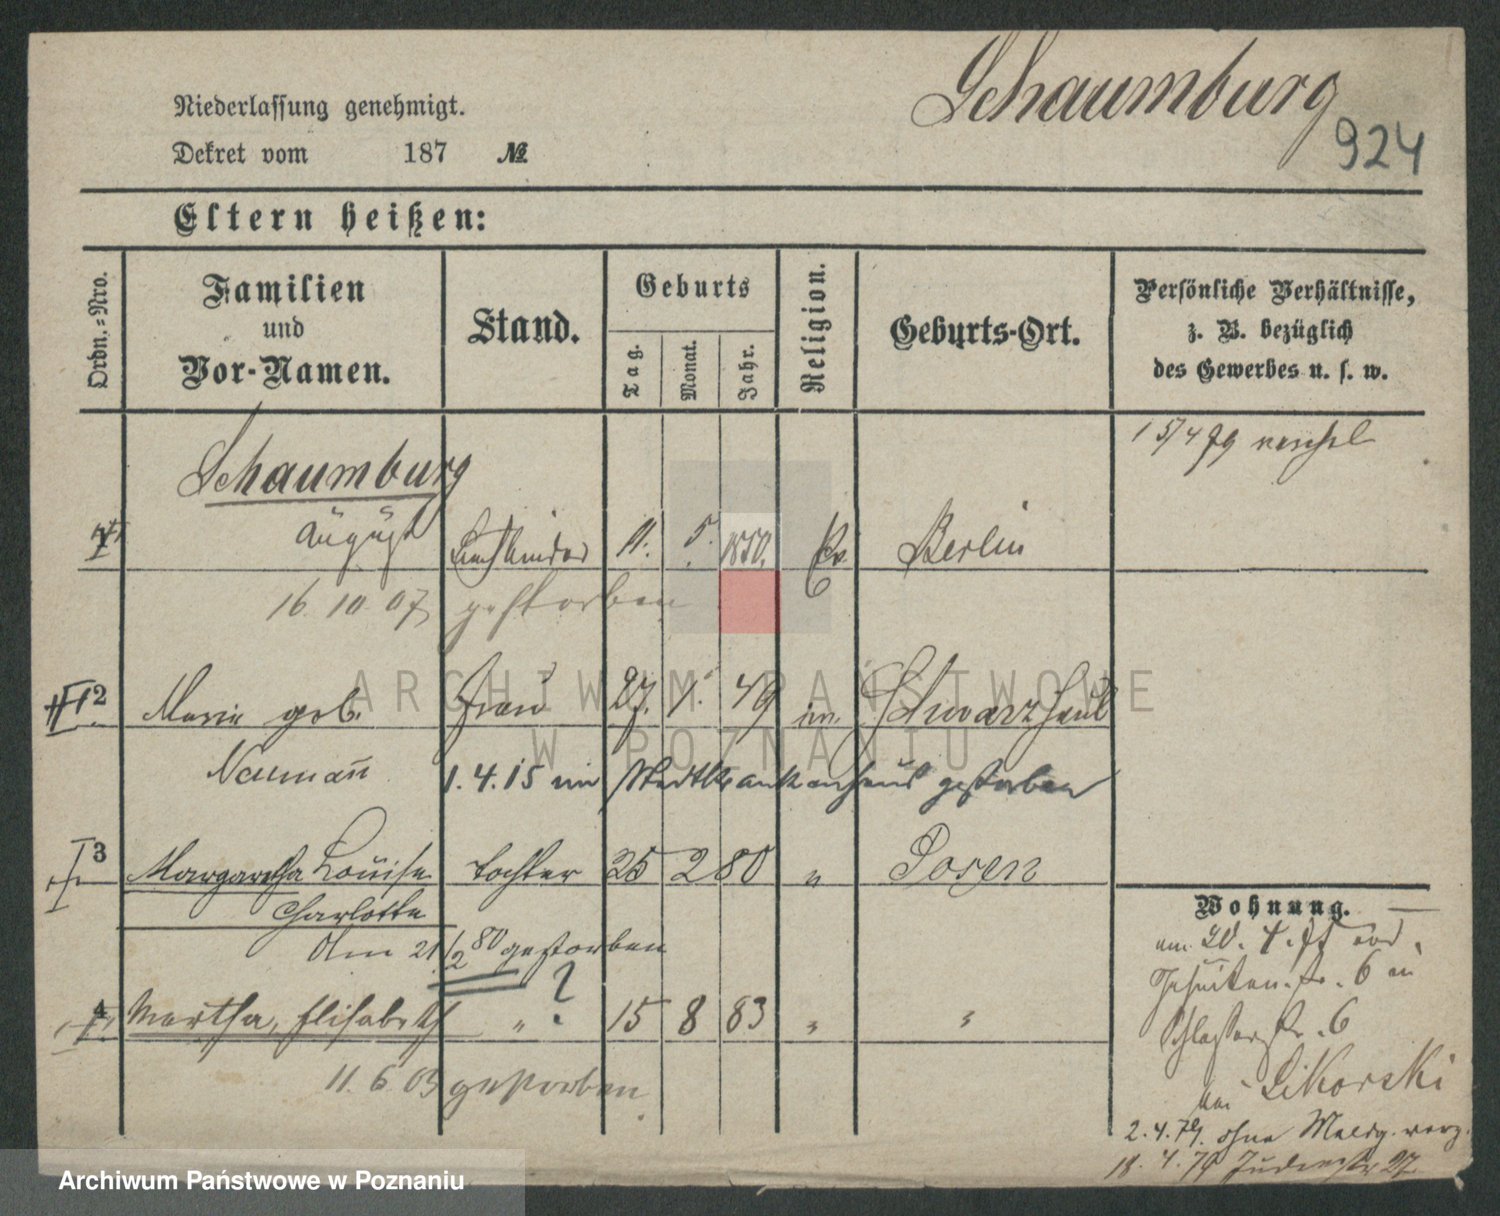 Schaumburg
924
Niederlassung genehmigt.
Dekret vom 187 №
Eltern heißen:
Ordn.=Nro.
Familien
und
Vor-Namen.
Stand.
Geburts
Tag.
Monat.
Jahr.
Religion.
Geburts-Ort.
Persönliche Verhältnisse,
z. B. bezüglich
des Gewerbes u. s. w.
15/4 79
Schaumburg
August Buchbinder 11. 5. 1850. Ev. Berlin
16. 10. 07 gestorben
2 Marie geb. Frau 27. 1. 49
Naumañ
1. 4. 15 im Stadtkrankenhaus gestorben
3 Margaretha Louise Tochter 25 2 80 " Posen
Charlotte
Am 21/2 80 gestorben
4 Martha, Elisabeth " ? 15 8 83 " "
11. 6. 03 gestorben
Wohnung.
str. 6
Schlosserstr. 6
bei Sikorski
2. 4. 79. ohne Meldg. verz.
18. 4. 79 Judenstr 27
ARCHIWUM PAŃSTWOWE
W POZNANIU
Archiwum Państwowe w Poznaniu